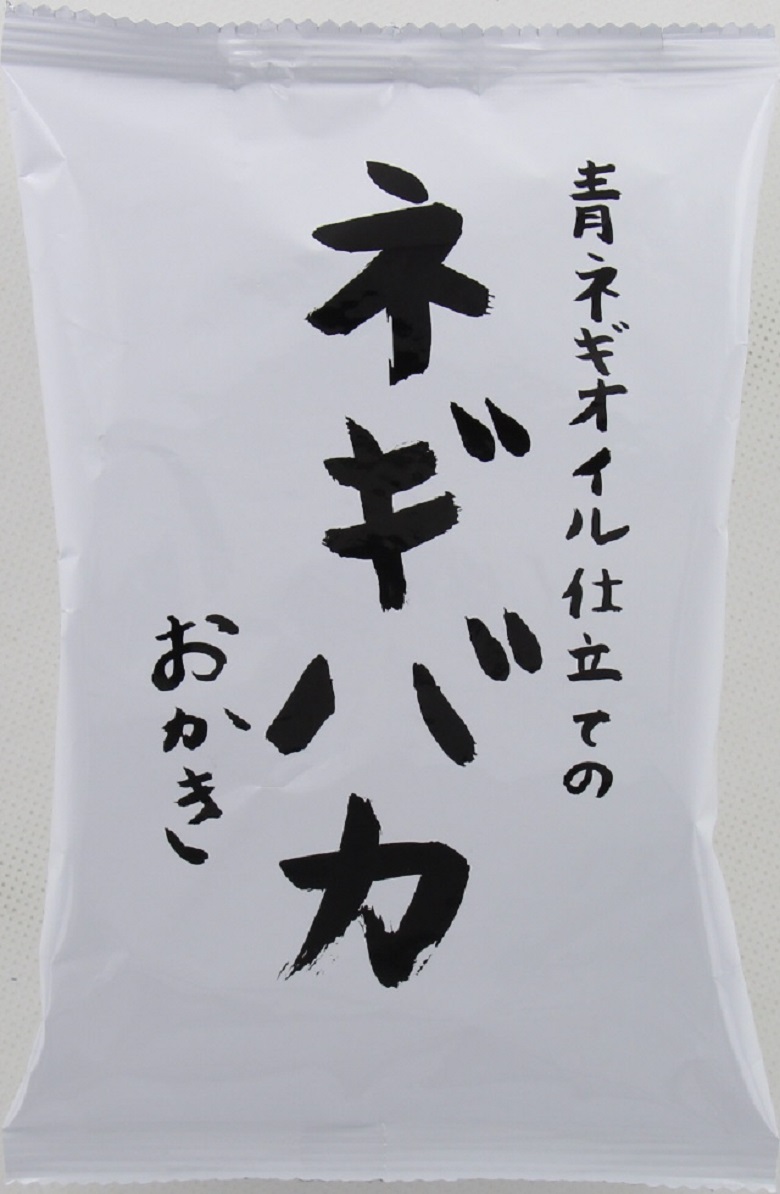 青ネギオイル仕立ての
ネギバカ
おかき